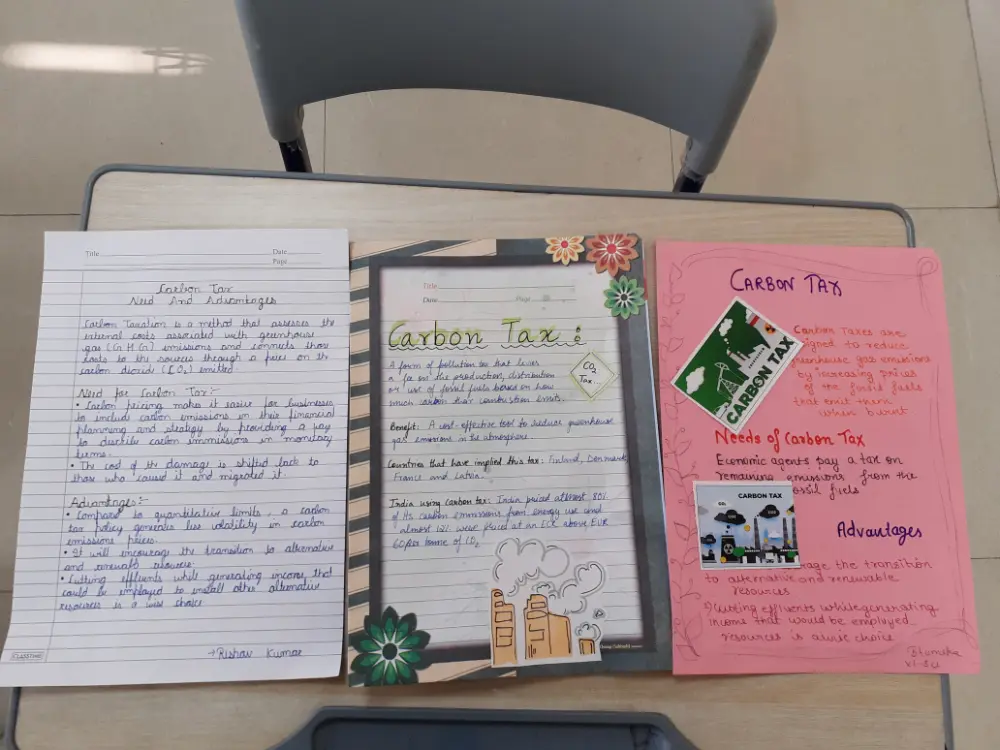 Title
Date
Page
Carbon Tax
Need And Advantages
Carbon Taxation is a method that assesses the
internal costs associated with greenhouse
gas (GHG) emissions and connects those
costs to the sources through a price on the
carbon dioxid (CO₂) emitted.
Need for Carbon Tax:-
• Carbon pricing makes it easier for businesses
to include carbon emissions in their financial
planning and strategy by providing a way
to describe carbon immissions in monetary
terms.
• The cost of the damage is shifted back to
those who caused it and migrated it.
Advantages:-
• Compared to quantitative limits, a carbon
tax policy generates less volatility in carbon
emissions prices.
• It will encourage the transition to alternative
and renewable resource.
• Cutting effluents while generating income that
could be employed to install other alternative
resources is a wise choice
→ Rishav Kumar
CLASSTIME
Title
Date
Page
Carbon Tax :
CO₂
Tax
A form of pollution tax that levies
a fee on the production, distribution
or use of fossil fuels based on how
much carbon their combustion emits.
Benefit: A cost-effective tool to reduce greenhouse
gas emissions in the atmosphere
Countries that have implied this tax: Finland, Denmark
France and Latvia.
India using carbon tax: India priced atleast 80%
of its carbon emissions from energy use and
almost 12% were priced at an ECR above EUR
60 per tonne of CO₂
CARBON TAX
CARBON TAX
Carbon Taxes are
signed to reduce
greenhouse gas emissions
by increasing prices
of the fossil fuels
that emit them
when burnt
Needs of Carbon Tax
Economic agents pay a tax on
remaining emissions from the
ossil fuels
CARBON TAX
Advantages
rage the transition
to alternative and renewable
resources
Cutting effluents while generating
income that would be employed
resources is a wise choice